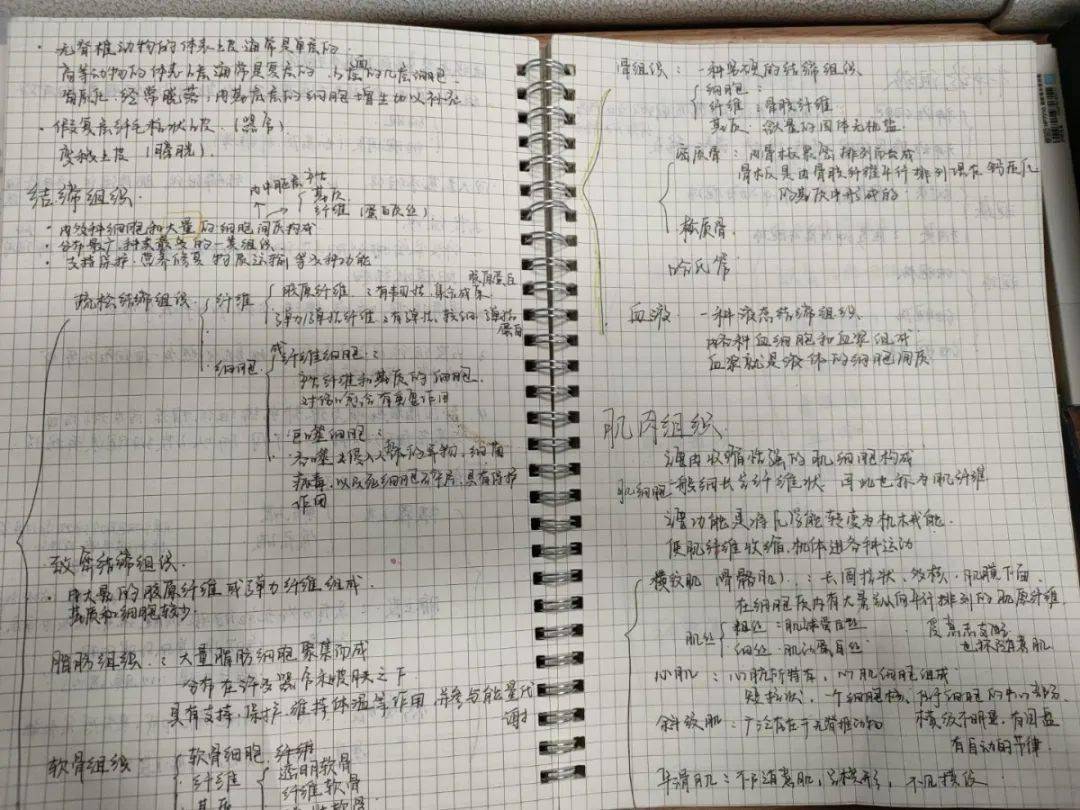 · 无脊椎动物的体表上皮通常是单层的
高等动物的体表上皮通常是复层的
角质化,经常脱落,由基底层的细胞增生加以补充
· 假复层纤毛柱状上皮 (器官)
变移上皮 (膀胱).
结缔组织.
内中胚层产生
基质
纤维 (蛋白质丝)
· 由多种细胞和大量的细胞间质构成
· 分布最广,种类最多的一类组织
· 支持保护,营养修复物质运输等多种功能
疏松结缔组织 纤维 胶原纤维 :有韧性,集合成束 胶原蛋白
弹力/弹性纤维 :有弹性,较细 弹性蛋白
细胞 成纤维细胞 :
纤维和基质的细胞.
对伤口愈合有重要作用
巨噬细胞 :
吞噬侵入人体的异物,细菌
病毒,以及死细胞碎片,具有保护
作用
致密结缔组织.
· 由大量的胶原纤维或弹力纤维组成.
基质和细胞较少.
脂肪组织 : 大量脂肪细胞聚集而成
分布在许多器官和皮肤之下
具有支持,保护,维持体温等作用,并参与能量代谢
软骨组织 软骨细胞,纤维
纤维 透明软骨
基质 纤维软骨
软骨
骨组织 : 一种坚硬的结缔组织.
细胞 :
纤维 :骨胶纤维
基质 :大量的固体无机盐.
密质骨 : 由骨板紧密排列而成
骨板是由骨胶纤维平行排列埋在钙质化
的基质中形成的
松质骨.
哈氏管
血液. 一种液态结缔组织.
由各种血细胞和血浆组成
血浆就是液体的细胞间质
肌肉组织.
主要由收缩性强的肌细胞构成
肌细胞一般细长呈纤维状 因此也称为肌纤维
主要功能是将化学能转变为机械能.
使肌纤维收缩,机体进行各种运动
横纹肌 (骨骼肌) : 长圆柱状,多核,肌膜下面.
在细胞质内有大量纵向平行排列的肌原纤维
肌丝 粗丝 :肌球蛋白丝 受意志支配
细丝 :肌动蛋白丝. 也称随意肌
心肌 : 心脏所特有,心肌细胞组成
短柱状,一个细胞核,位于细胞的中心部分
斜纹肌 : 广泛存在于无脊椎动物 横纹不明显,有闰盘
有自动的节律.
平滑肌 : 不随意肌,呈梭形,不见横纹